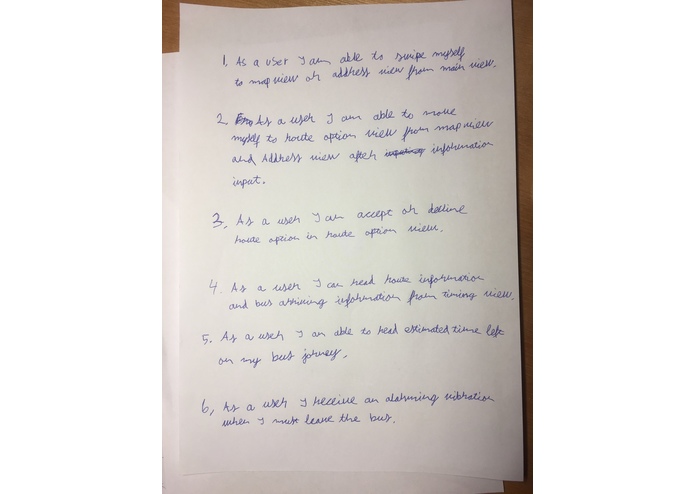 1. As a user I am able to swipe myself
to map view or address view from main view.
2. As a user I am able to move
myself to route option view from map view
and Address view after information
input.
3. As a user I can accept or decline
route option in route option view.
4. As a user I can read route information
and bus arriving information from timing view.
5. As a user I am able to read estimated time left
on my bus journey.
6, As a user I receive an alarming vibration
when I must leave the bus.